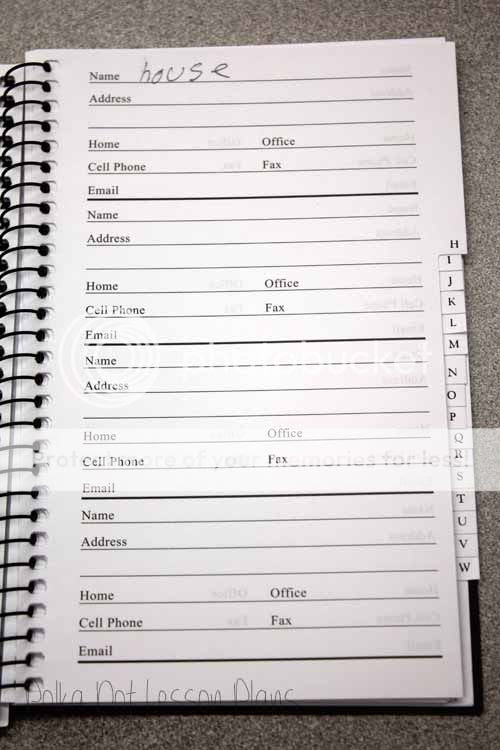 Name house
Address
Home Office
Cell Phone Fax
Email
Name
Address
Home Office
Cell Phone Fax
Email
Name
Address
Home Office
Cell Phone Fax
Email
Name
Address
Home Office
Cell Phone Fax
Email
H
I
J
K
L
M
N
O
P
Q
R
S
T
U
V
W
photobucket
Protect more of your memories for less!
Polka Dot Lesson Plans